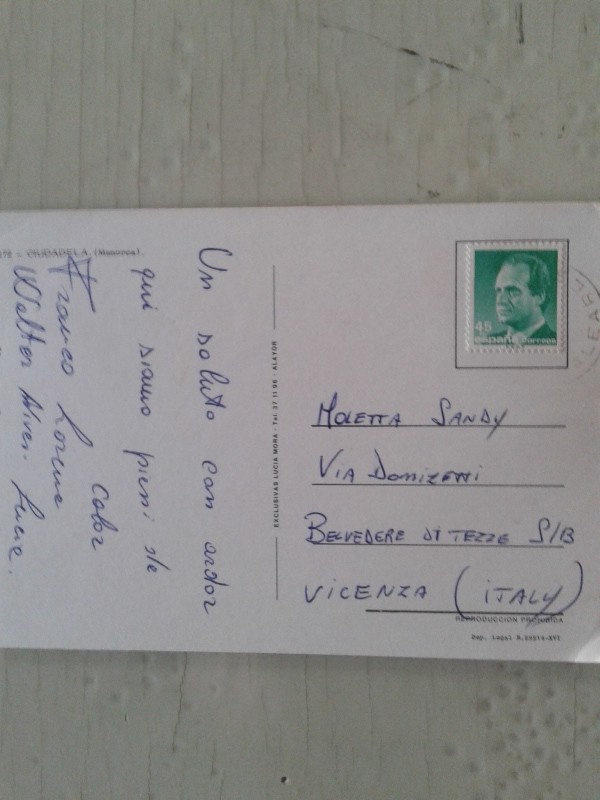 CIUDADELA (Menorca).
Un saluto con ardor
qui siamo pieni de
calor
Franco Lorena
Walter Lucia.
EXCLUSIVAS LUCIA MORA - Tel. 37 11 96 - ALAYOR
45
España correos
MOLETTA SANDY
VIA DONIZETTI
BELVEDERE DI TEZZE S/B
VICENZA (ITALY)
REPRODUCCION PROHIBIDA
Dep. Legal